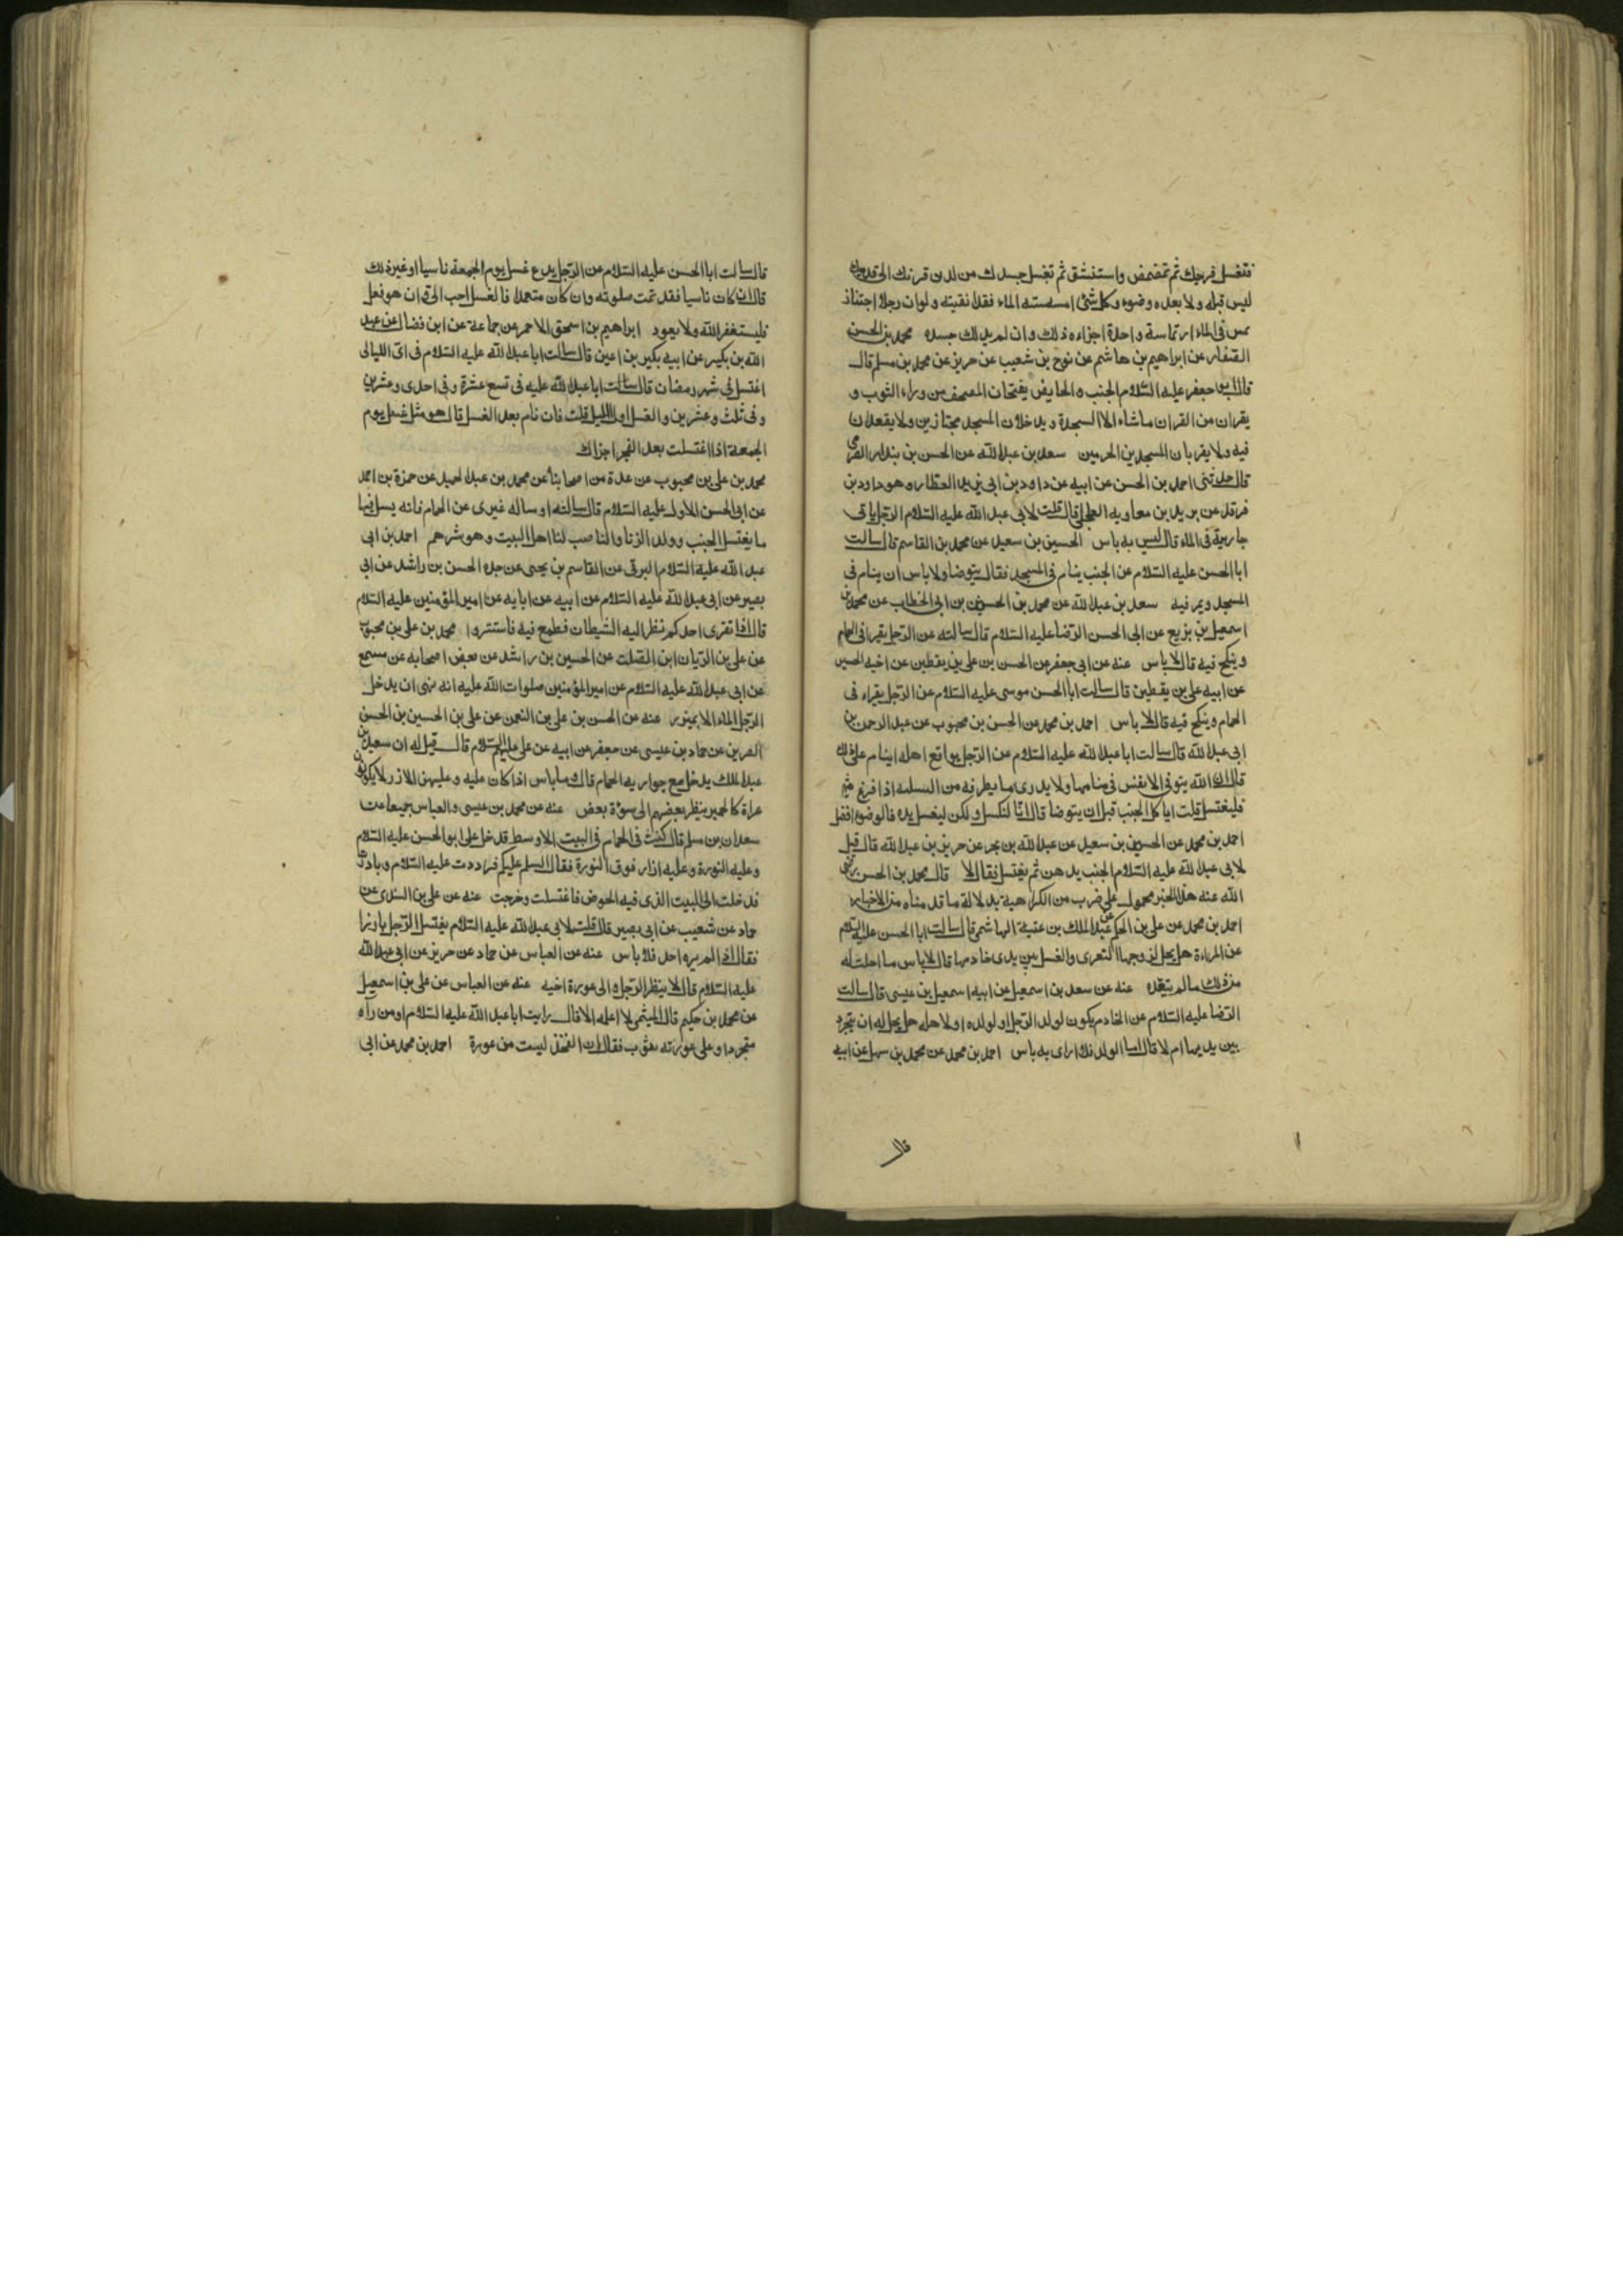 فتغسل فرجك ثم تمضمض واستنشق ثم تغسل جسدك من لدن قرنك الى قدميك
ليس قبله ولا بعده وضوء وكل شئ امسسته الماء فقد نقيته ولو ان رجلا اجتنب
تمس فى الماء ارتماسة واحدة اجزاه ذلك وان لم يدلك جسده محمد بن الحسن
الصفار عن ابراهيم بن هاشم عن نوح بن شعيب عن حريز عن محمد بن مسلم قال
قال ابو جعفر عليه السلام الجنب والحايض يفتحان المصحف من وراء الثوب و
يقران من القران ما شاء الا السجدة ويدخلان المسجد مجتازين ولا يقعدان
فيه ولا يقربان المسجدين الحرمين سعد بن عبد الله عن الحسن بن بندار الصرمى
قال حدثنى احمد بن الحسن عن ابيه عن داود بن ابى يزيد العطار وهو داود بن
فرقد عن بريد بن معاويه العجلى قال قلت لابى عبد الله عليه السلام الرجل ياتى
جاريته فى الماء قال ليس به باس الحسين بن سعيد عن محمد بن القاسم قال سالت
ابا الحسن عليه السلام عن الجنب ينام فى المسجد فقال يتوضا ولا باس ان ينام فى
المسجد ويمر فيه سعد بن عبد الله عن محمد بن الحسين بن ابى الخطاب عن محمد بن
اسمعيل بن بزيع عن ابى الحسن الرضا عليه السلام قال سالته عن الرجل يقرا فى الحمام
وينكح فيه قال لا باس عنه عن ابى جعفر عن الحسن بن على بن يقطين عن اخيه الحسين
عن ابيه على بن يقطين قال سالت ابا الحسن موسى عليه السلام عن الرجل يقراء فى
الحمام وينكح فيه قال لا باس احمد بن محمد عن الحسن بن محبوب عن عبد الرحمن بن
ابى عبد الله قال سالت ابا عبد الله عليه السلام عن الرجل يواقع اهله اينام على ذلك
قال ان الله يتوفى الانفس فى منامها ولا يدرى ما يطرقه من البلية اذا فرغ
فليغتسل قلت اياكل الجنب قبل ان يتوضا قال انا لنكسل ولكن ليغسل يده فالوضوء افضل
احمد بن محمد عن الحسين بن سعيد عن عبد الله بن بحر عن حريز بن عبد الله قال قيل
لابى عبد الله عليه السلام الجنب يدهن ثم يغتسل فقال لا قال محمد بن الحسن رضى
الله عنه هذا الخبر محمول على ضرب من الكراهية بدلالة ما قدمناه من الاخبار
احمد بن محمد عن على بن الحكم عن عبد الملك بن عتبة الهاشمى قال سالت ابا الحسن عليه السلام
عن المراءة هل يحل لزوجها التعرى والغسل بين يدى خادمها قال لا باس ما احلت له
من ذلك ما لم يتعده عنه عن سعد بن اسمعيل عن ابيه اسمعيل بن عيسى قال سالت
الرضا عليه السلام عن الخادم يكون لولد الرجل او لولده او لاهله هل يحل له ان يتجرد
بين يديها ام لا قال اما الولد فلا ارى به باس احمد بن محمد عن محمد بن سهل عن ابيه
قال
قال سالت ابا الحسن عليه السلام عن الرجل يدع غسل يوم الجمعة ناسيا او غير ذلك
قال ان كان ناسيا فقد تمت صلوته وان كان متعمدا فالغسل احب الى فان هو فعل
فليستغفر الله ولا يعود ابراهيم بن اسحق الاحمر عن جماعة عن ابن فضال عن عبد
الله بن بكير عن ابيه بكير بن اعين قال سالت ابا عبد الله عليه السلام فى اى الليالى
اغتسل فى شهر رمضان قال سالت ابا عبد الله عليه فى تسع عشرة وفى احدى وعشرين
وفى ثلث وعشرين والغسل اول الليل قلت فان نام بعد الغسل قال هو مثل غسل يوم
الجمعة اذا اغتسلت بعد الفجر اجزاك
محمد بن على بن محبوب عن عدة من اصحابنا عن محمد بن عبد الحميد عن حمزة بن احمد
عن ابى الحسن الاول عليه السلام قال سالته او ساله غيرى عن الحمام فانه يسل فيها
ما يغتسل الجنب وولد الزنا والناصب لنا اهل البيت وهو شرهم احمد بن ابى
عبد الله عليه السلام البرقى عن القاسم بن يحيى عن جده الحسن بن راشد عن ابى
بصير عن ابى عبد الله عليه السلام عن ابيه عن ابايه عن امير المؤمنين عليه السلام
قال اذا تعرى احدكم نظر اليه الشيطان فطمع فيه فاستتروا محمد بن على بن محبوب
عن على بن الريان ابن الصلت عن الحسين بن راشد عن بعض اصحابه عن مسمع
عن ابى عبد الله عليه السلام عن امير المؤمنين صلوات الله عليه انه نهى ان يدخل
الرجل الماء الا بميزر عنه عن الحسن بن على بن النعمن عن على بن الحسين بن الحسن
الضرير عن حماد بن عيسى عن جعفر عن ابيه عن على عليهم السلام قال قيل له ان سعيد بن
عبد الملك يدخل مع جواريه الحمام قال وما باس اذا كان عليه وعليهن الازر لا يكونون
عراة كالحمير ينظر بعضهم الى سوءة بعض عنه عن محمد بن عيسى والعباس جميعا عن
سعدان بن مسلم قال كنت فى الحمام فى البيت الاوسط فدخل على ابو الحسن عليه السلام
وعليه النورة وعليه ازار فوق النورة فقال السلم عليكم فرددت عليه السلام وبادرت
فدخلت الى البيت الذى فيه الحوض فاغتسلت وخرجت عنه عن على بن السندى عن
حماد عن شعيب عن ابى بصير قال قلت لابى عبد الله عليه السلام يغتسل الرجل بارزا
فقال اذا لم يره احد فلا باس عنه عن العباس عن حماد عن حريز عن ابى عبد الله
عليه السلام قال لا ينظر الرجل الى عورة اخيه عنه عن العباس عن على بن اسمعيل
عن محمد بن حكيم قال الميثمى لا اعلمه الا قال رايت ابا عبد الله عليه السلام او من رآه
متجردا وعلى عورته ثوب فقال ان الفخذ ليست من عورة احمد بن محمد عن ابى